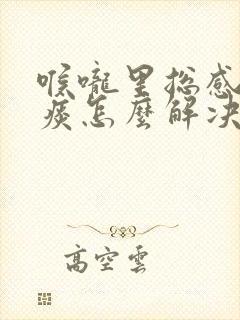 喉嚨里总感
痰怎麼解决
高空雲